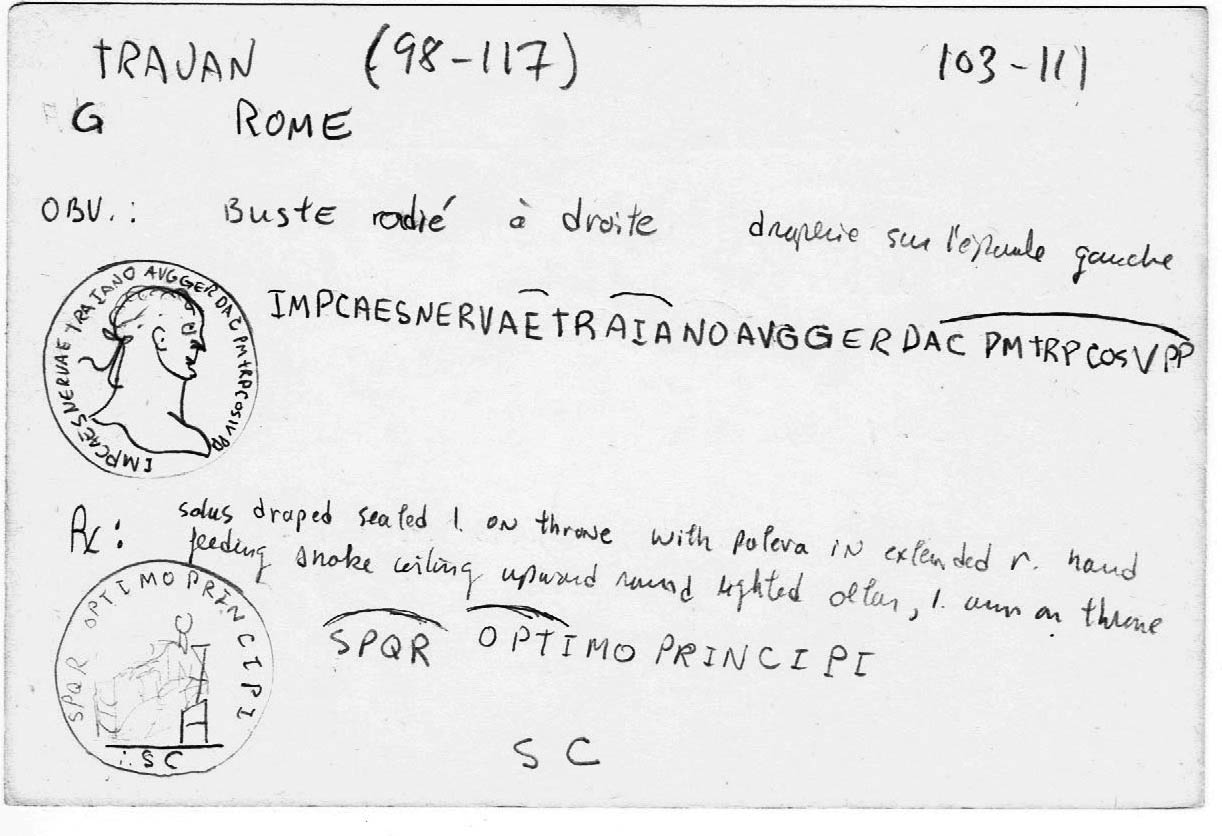 TRAJAN (98-117) 103-111
G ROME
OBV.: BUSTE radié à droite draperie sur l'épaule gauche
IMPCAESNERVAETRAIANOAVGGERDAC PMTRPCOSVPP
IMPCAESNERVAETRAIANO AVGGERDAC PMTRPCOSIVPP
salus draped seated l. on throne with patera in extended r. hand
feeding snake coiling upward round lighted altar, l. arm on throne
SPQR OPTIMO PRINCIPI
SPQR OPTIMO PRINCIPI
SC
S C